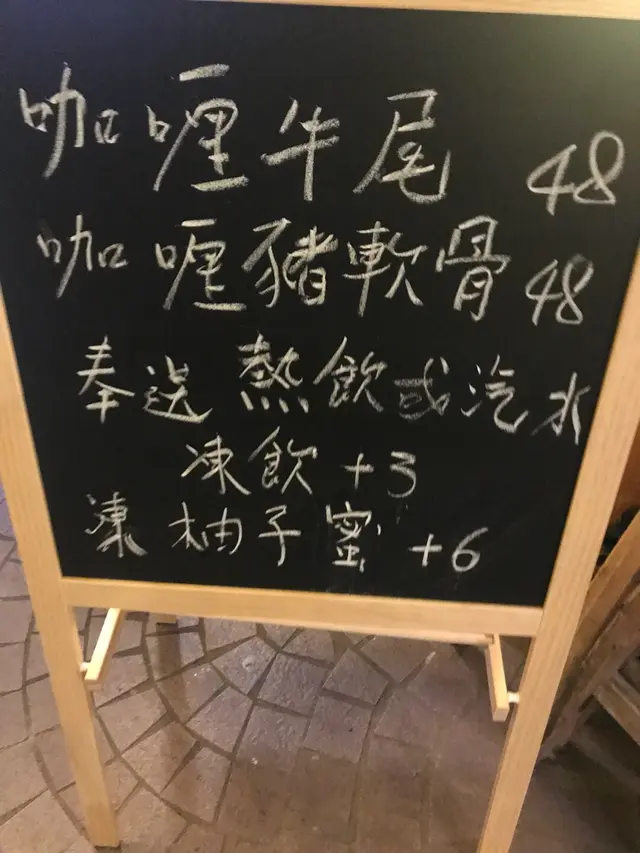 咖喱牛尾 48
咖喱豬軟骨 48
奉送 熱飲或汽水
凍飲 +3
凍 柚子蜜 +6